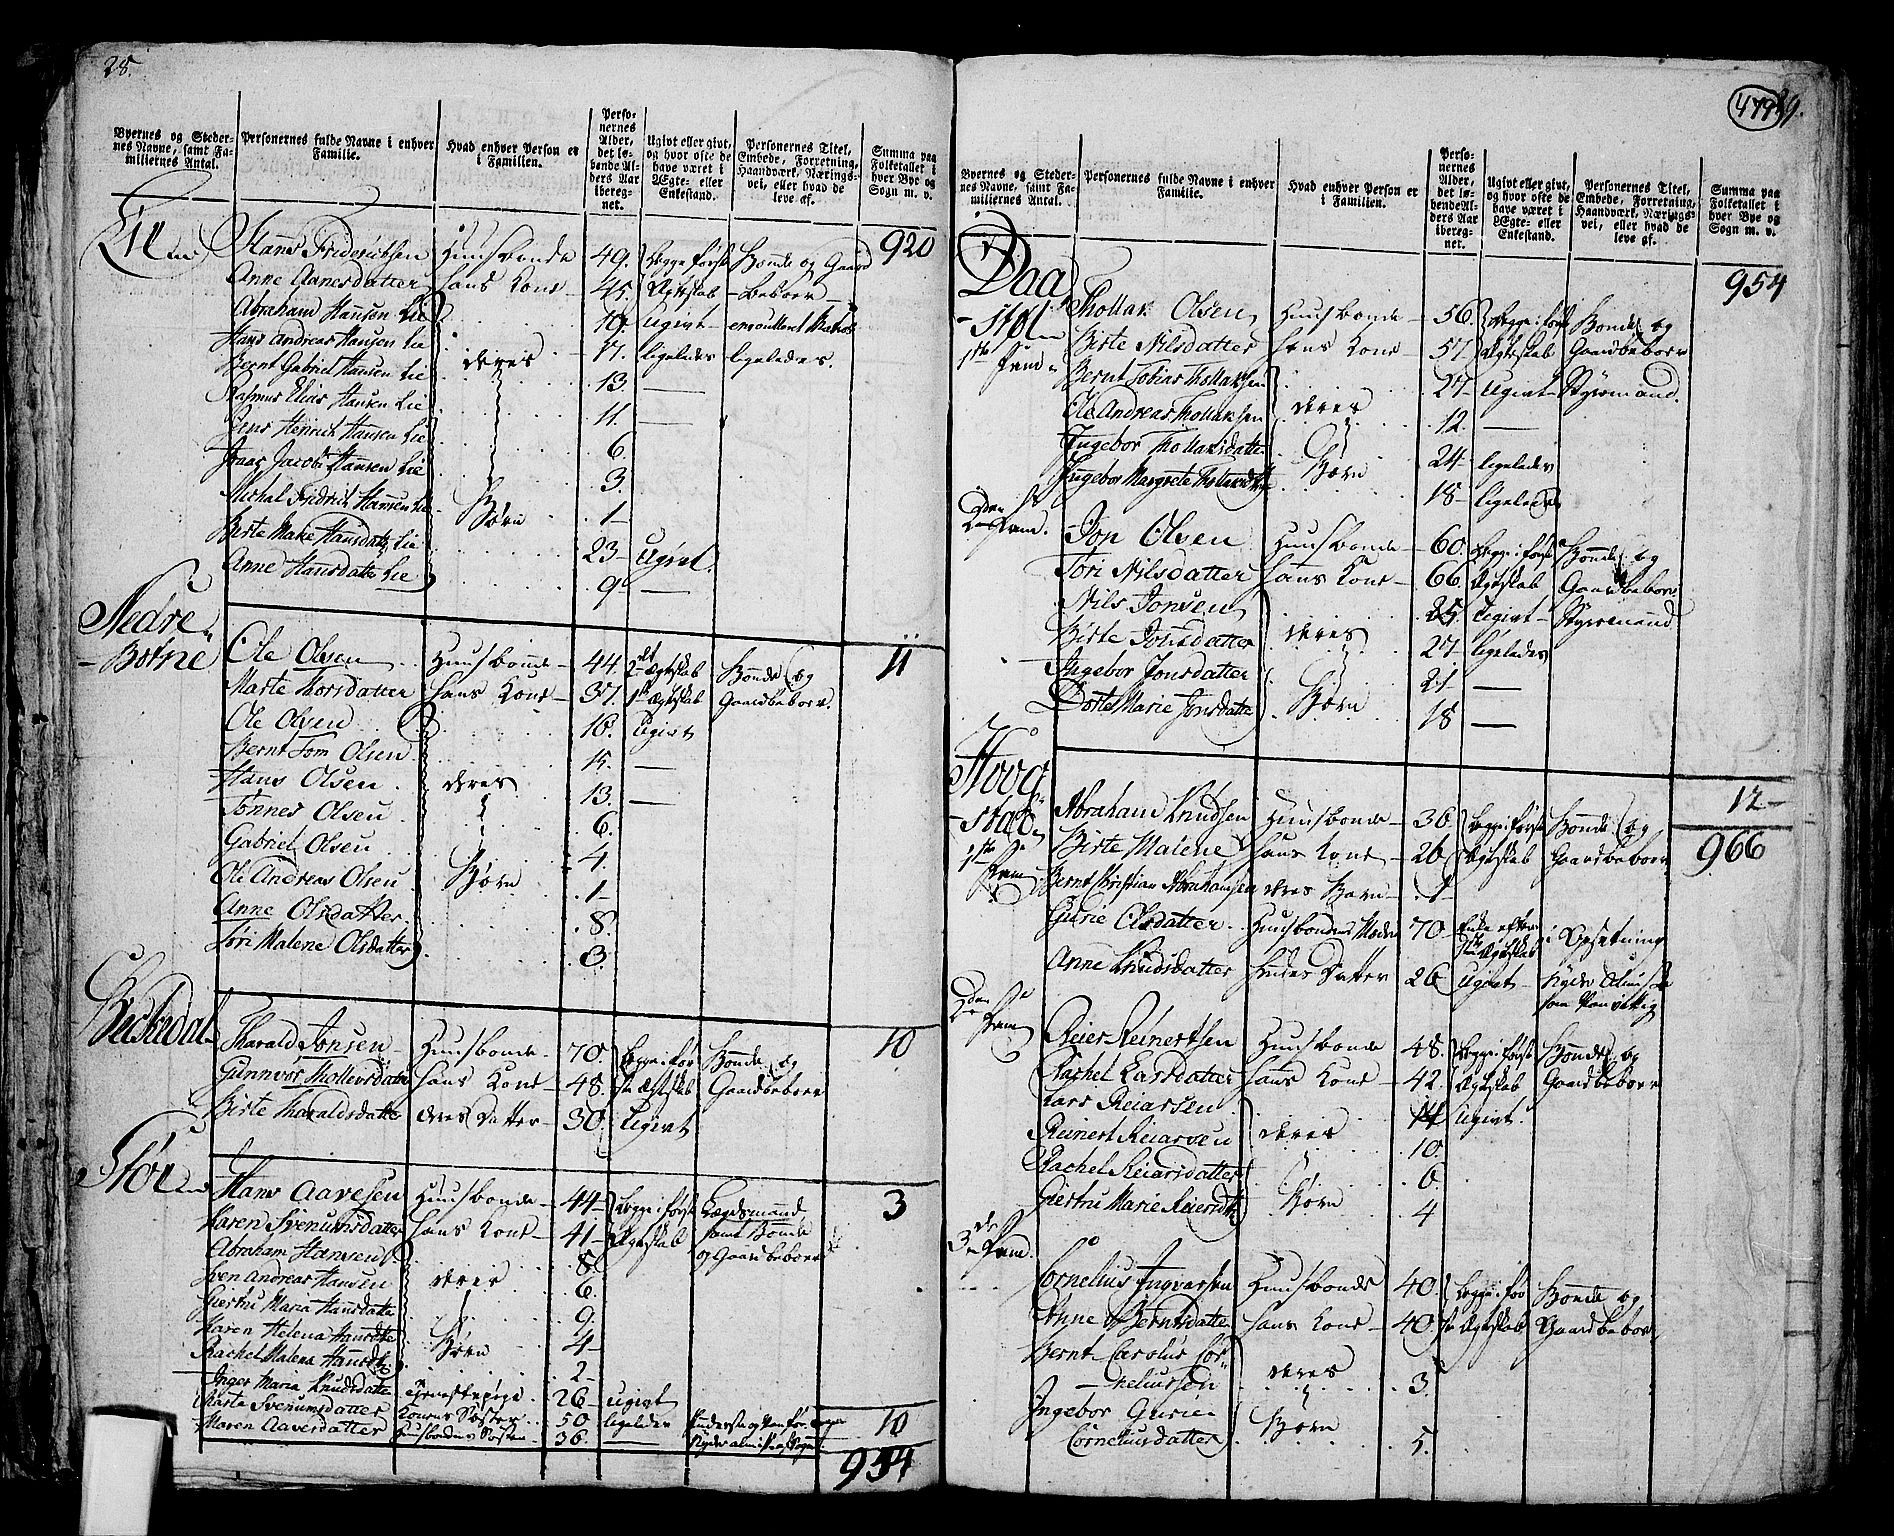 28.
Byernes og Steder-
nes Navne, samt Fa-
miliernes Antal.
Personernes fulde Navne i enhver
Familie.
Hvad enhver Person er
i Familien.
Perso-
nernes
Alder,
det lø-
bende Al-
ders Aar
iberegnet.
Ugivt eller givt,
og hvor ofte de
have været i
Ægte- eller
Enkestand.
Personernes Titel,
Embede, Forretning,
Haandværk, Nærings-
vei, eller hvad de
leve af.
Summa paa
Folketallet i
hver Bye og
Sogn m. v.
Hans Friderichsen Huusbonde 49. Begge første Bonde og Gaard 920
Anne Aanesdatter hans Kone 45. Ægteskab beboer
Abraham Hansen Lie 19. Ugivt enroulleret Matros
Hans Andreas Hansen Lie 17. ligeledes ligeledes.
Bernt Gabriel Hansen Lie deres 13. —
Rasmus Elias Hansen Lie 11. —
Jens Henrich Hansen Lie 6.
Isaac Jacob Hansen Lie 3.
Michal Fridrich Hansen Lie Børn 1
Birte Marie Hansdatter Lie 23 Ugivt
Anne Hansdatter Lie 9 —
11
Nedre
Botne
Ole Olsen Huusbonde 44. 2det Ægteskab Bonde og
Marte Morsdatter hans Kone 37. 1te Ægteskab Gaardbeboer.
Ole Olsen 16. Ugivt
Bernt Tom Olsen 15. —
Hans Olsen deres 13. —
Tønnes Olsen 6.
Gabriel Olsen 4.
Ole Andreas Olsen Børn 1
Anne Olsdatter 8.
Tøri Malene Olsdatter 3.
10
Harald Jonsen Huusbonde 70. Begge i før Bonde og
Gunnvor Thollevsdatter hans Kone 48. ste Ægteskab Gaardbeboer
Birte Haraldsdatter deres Datter 30. Ugivt
3
Hans Aavesen Huusbonde 44 Begge i første Lægdsmand
Karen Svenumsdatter hans Kone 41 Ægteskab samt Bonde
og Gaardbeboer
Abraham Hansen 8.
Sven Andreas Hansen deres 6.
Giertru Maria Hansdatter 9.
Karen Helena Hansdatter Børn 4
Rachel Malena Hansdatter 2
Inger Maria Knudsdatter tjenestepige 26 ugivt
Marte Svenumsdatter Konens Søster 50 ligeledes
Maren Aavesdatter Huusbondens Søster 36. —
10
954
479
29.
Byernes og Steder-
nes Navne, samt Fa-
miliernes Antal.
Personernes fulde Navne i enhver
Familie.
Hvad enhver Person er
i Familien.
Perso-
nernes
Alder,
det lø-
bende Al-
ders Aar
iberegnet.
Ugivt eller givt,
og hvor ofte de
have været i
Ægte- eller
Enkestand.
Personernes Titel,
Embede, Forretning,
Haandværk, Nærings-
vei, eller hvad de
leve af.
Summa paa
Folketallet i
hver Bye og
Sogn m. v.
954
Daa
støl
1te Fam.
Thollak Olsen Huusbonde 56. Begge i første Bonde og
Birte Nilsdatter hans Kone 57. Ægteskab Gaardbeboer
Bernt Tobias Thollaksen 27 Ugivt Styrmand.
Ole Andreas Thollaksen deres 12. —
Ingebor Thollaksdatter 24 ligeledes
Ingebor Margrete Thollaksdatter Børn 18 ligeledes
Jon Olsen Huusbonde 60. Begge i første Bonde og
Tori Nilsdatter hans Kone 66 Ægteskab Gaardbeboer
Nils Jonsen 25. Ugivt Styrmand
Birte Jonsdatter deres 27 ligeledes
Ingebor Jonsdatter 21 —
Dorte Marie Jonsdatter Børn 18 —
12
Hovd
stad
1te Fam.
Abraham Knudsen Huusbonde 36. Begge i første Bonde og
Birte Malene hans Kone 26 Ægteskab Gaardbeboer
966
Bernt Kristian Abrahamsen deres Barn 1
Gurie Olsdatter Huusbondens Moder 70 Enke efter 1te Ægteskab i Opsetning
Anne Knudsdatter hendes Datter 26 Ugivt nyder Almisse
som Vanvittig
Reier Reinertsen Huusbonde 48. Begge i første Bonde og
Rachel Larsdatter hans Kone 42. Ægteskab Gaardbeboer
Lars Reiarsen 14 Ugivt
Reinert Reiarsen deres 10.
Rachel Reiarsdatter 6.
Giertru Marie Reiersdatter Børn 4
3de Fam.
Cornelius Ingvarsen Huusbonde 40. Begge i før Bonde og
Anne Berntsdatter hans Kone 40 ste Ægteskab Gaardbeboer
Bernt Carolus Cor-
neliussen deres 3.
Ingebor Gurie
Corneliusdatter Børn 5.